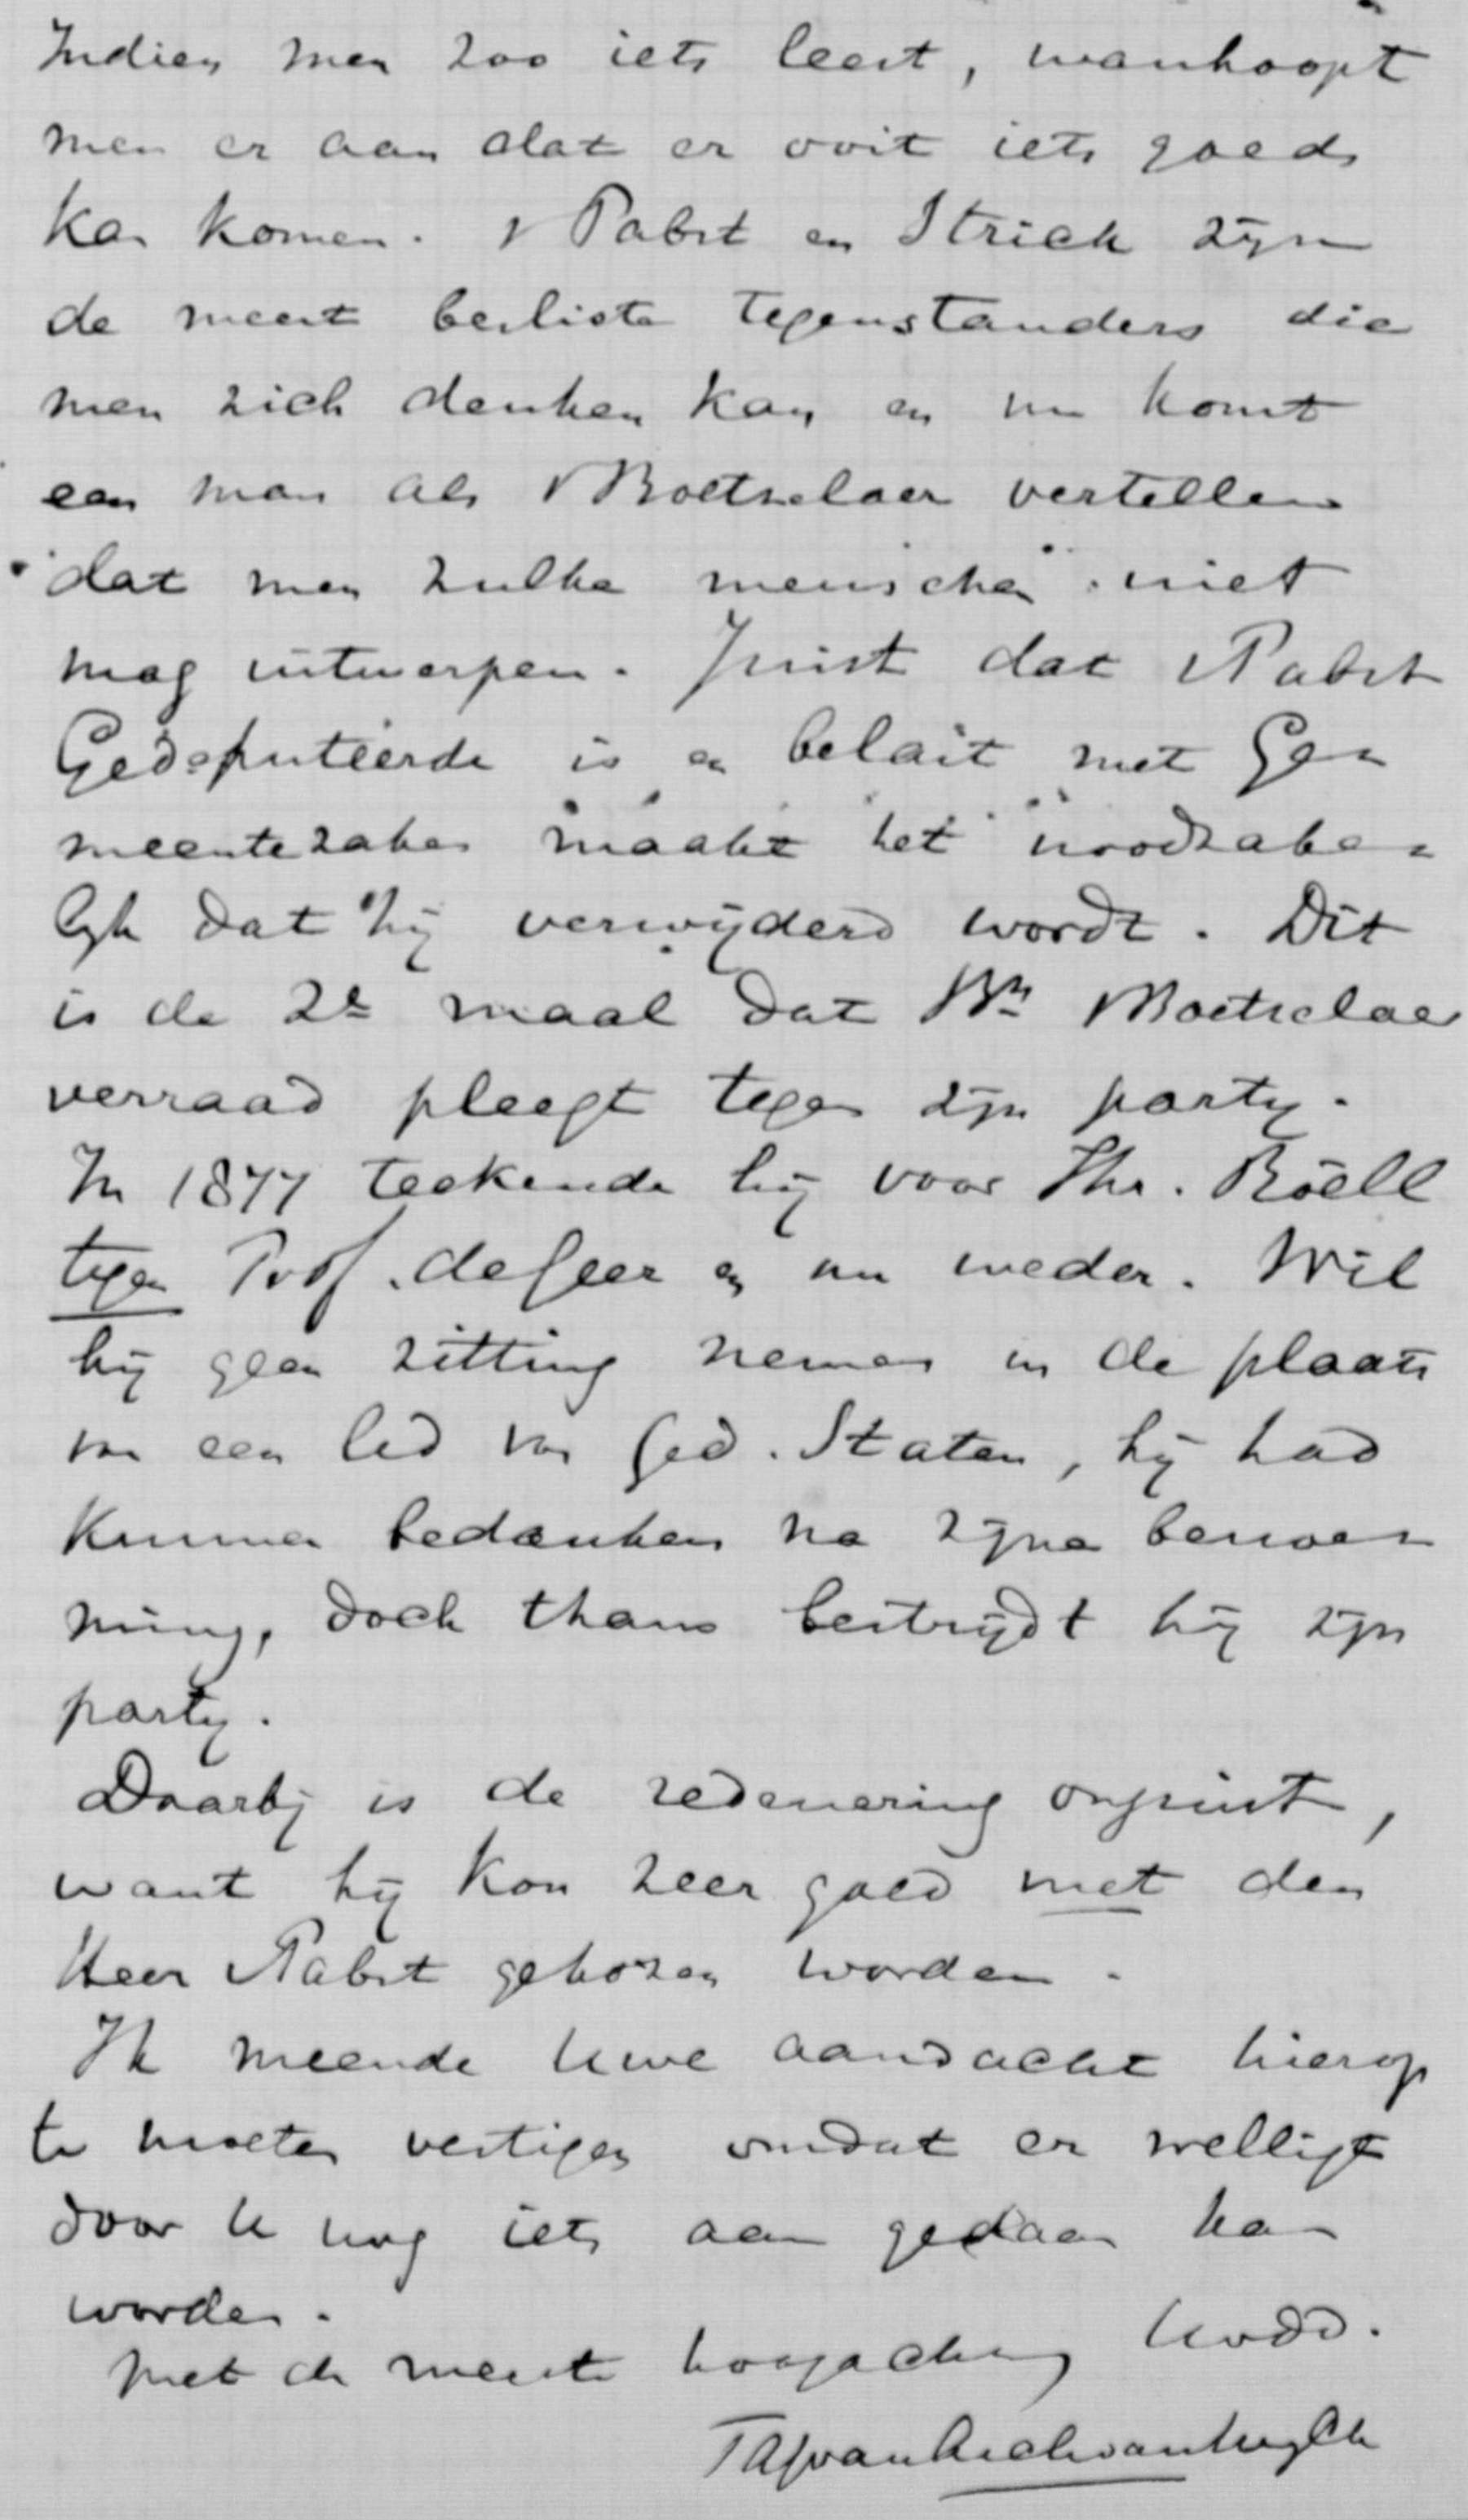 Indien men zoo iets leest, wanhoopt
men er aan dat er ooit iets goeds
kan komen. v Pabst en Strick zijn
de meest besliste tegenstanders die
men zich denken kan en nu komt
een man als v Boetselaer vertellen
dat men zulke menschen niet
mag uitwerpen. Juist dat v Pabst
Gedeputeerde is en belast met Ge=
meentezaken maakt het noodzake=
lijk dat hij verwijderd wordt. Dit
is de 2e maal dat Bn v Boetselaer
verraad pleegt tegen zijn partij.
In 1877 teekende hij voor Jhr. Röell
tegen Prof. de Geer en nu weder. Wil
hij geen zitting nemen in de plaats
van een lid van Ged. Staten, hij had
kunnen bedanken na zijne benoe=
ming, doch thans bestrijdt hij zijn
partij.
Daarbij is de redenering onjuist,
want hij kon zeer goed met den
Heer v Pabst gekozen worden.
Ik meende Uwe aandacht hierop
te moeten vestigen omdat er welligt
door U nog iets aan gedaan kan
worden.
Met de meeste hoogachting Uwdd.
TAJ van Asch van Wijck